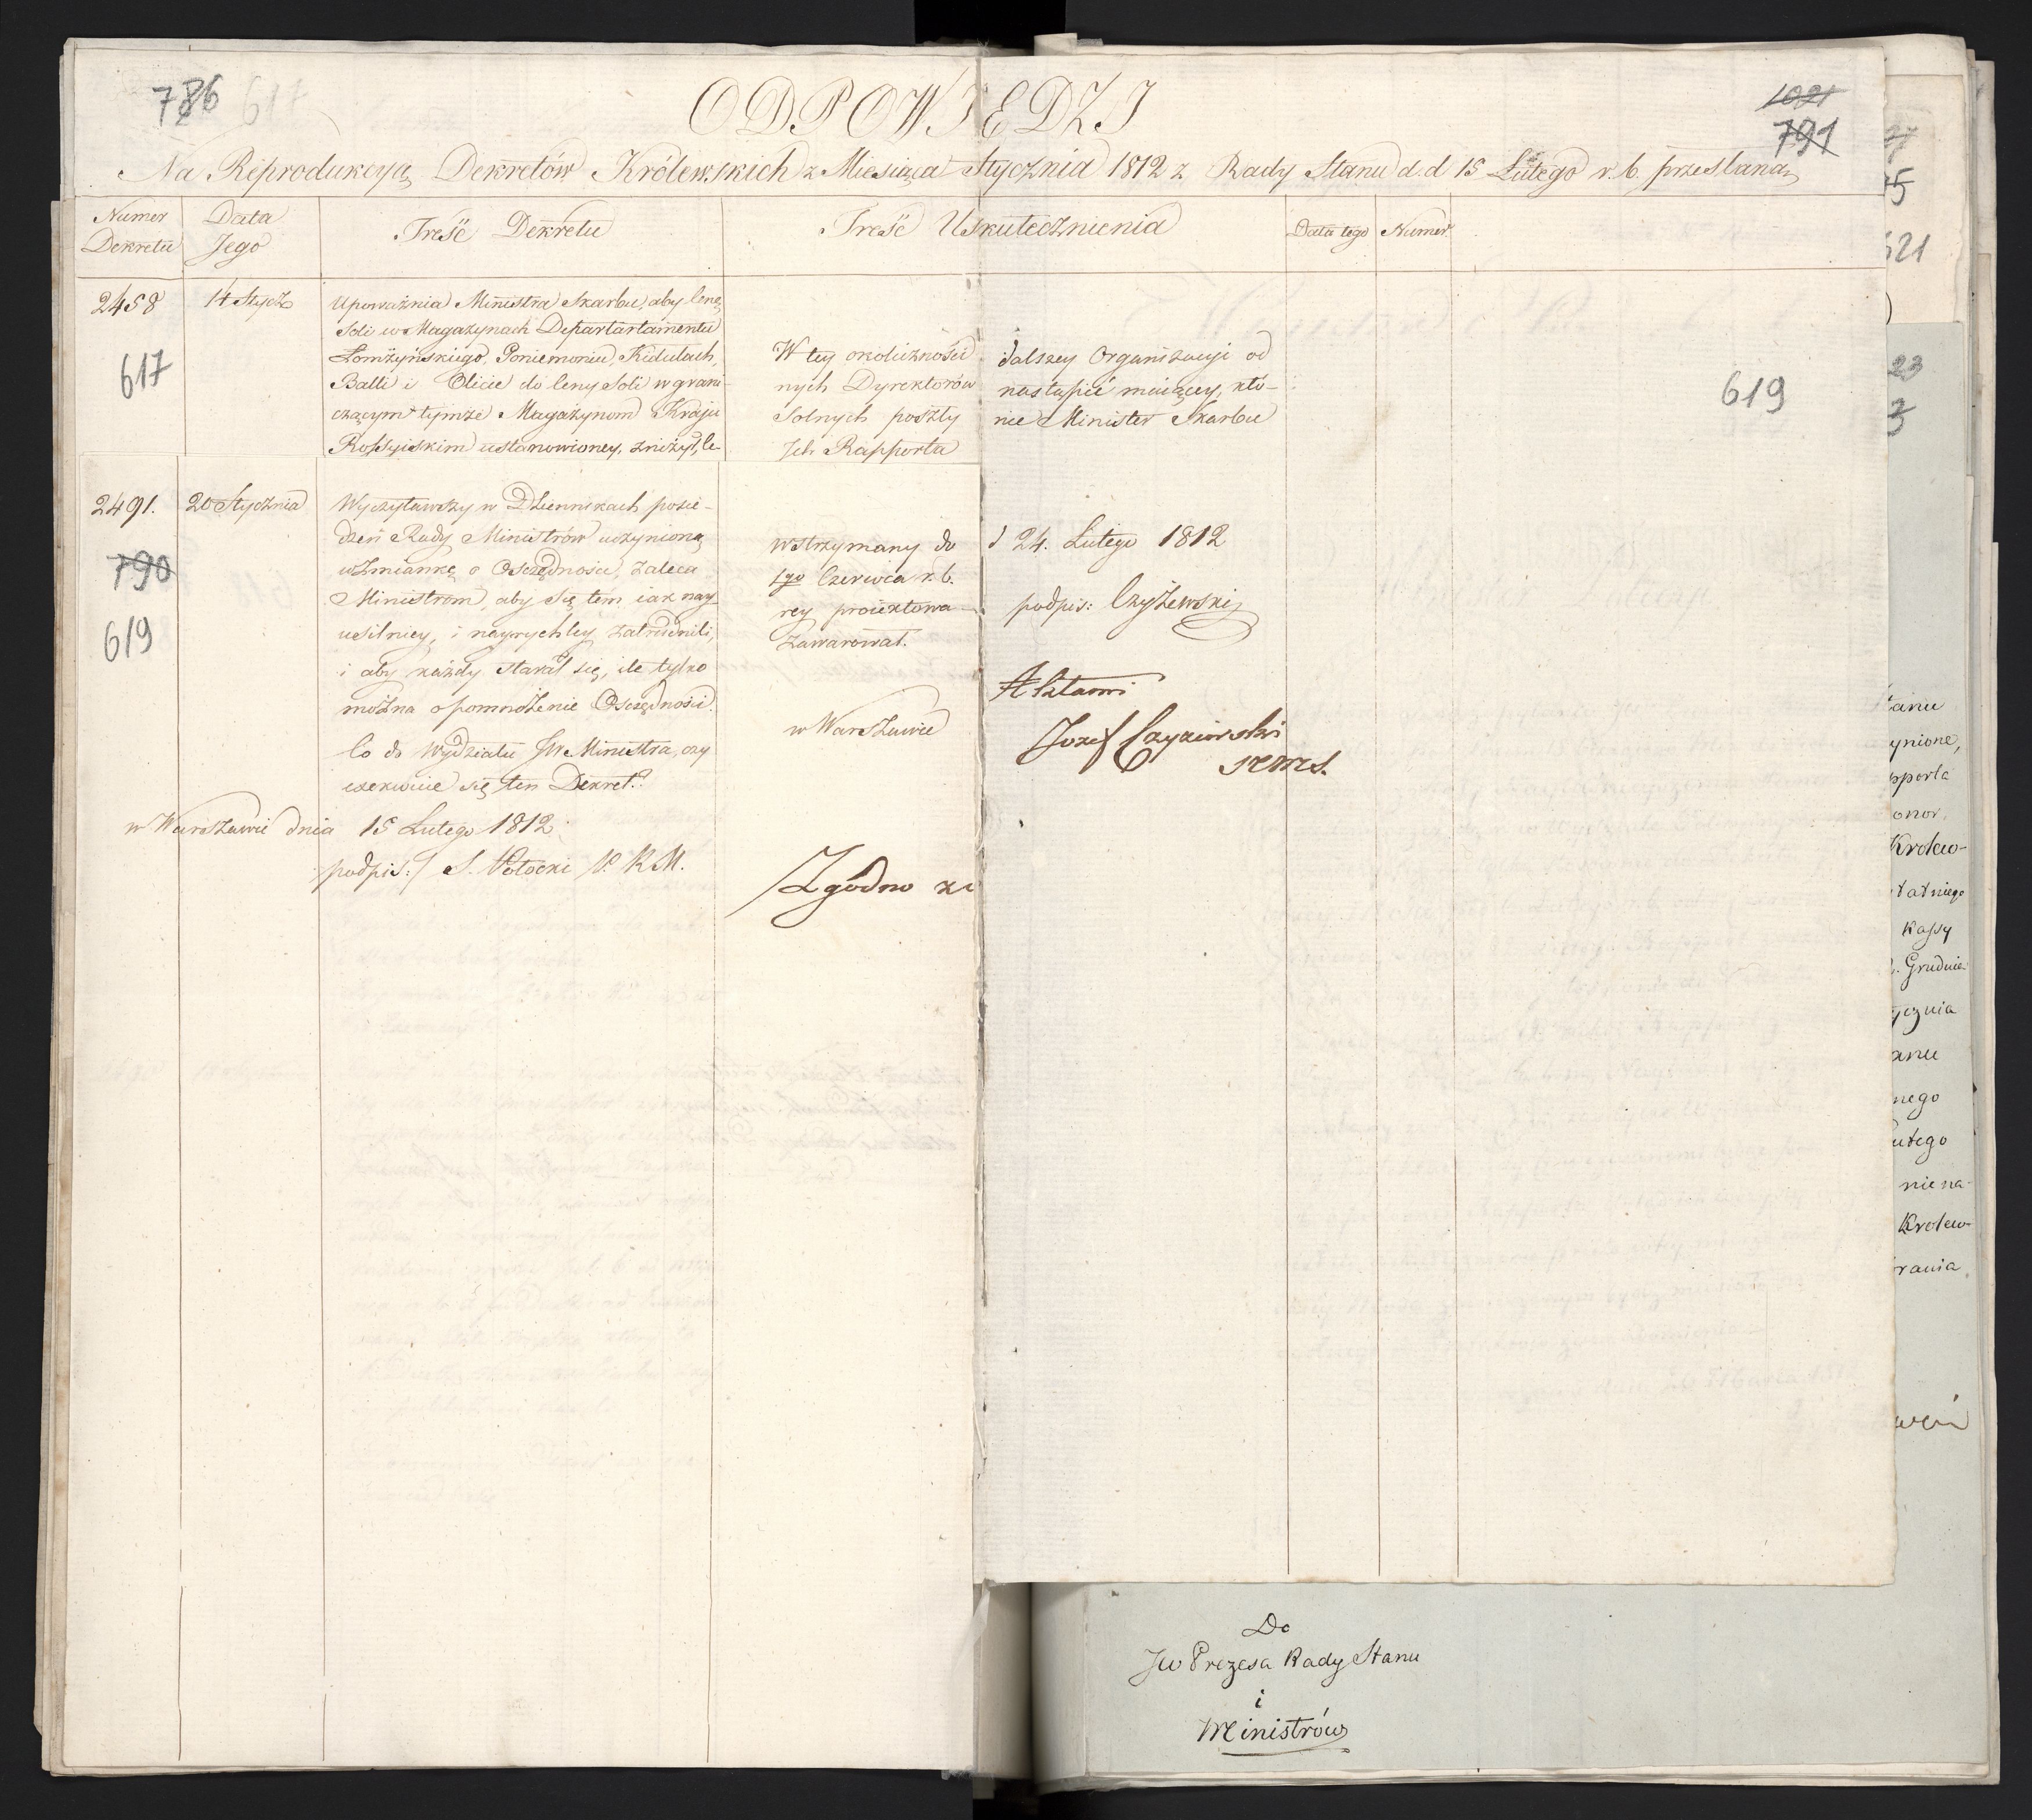 786 617
1021
791
ODPOWIEDZI
Na Reprodukcyą Dekretów Królewskich z Miesiąca Stycznia 1812 z Rady Stanu d.d 15 Lutego r. b. przesłaną
Numer Dekretu
Data Jego
Treść Dekretu
Treść Uskutecznienia
Data tego
Numer
2458
617
14 Stycz
Upoważnia Ministra Skarbu, aby Cenę
Soli w Magazynach Departartamentu
Łomżyńskiego, Poniemoniu, Kidulach,
Balli i Olicie do Ceny Soli w grani-
czącym tymże Magazynom Kraju
Rossyiskim ustanowioney, zniżył, le-
W tey okoliczności
nych Dyrektorów
Solnych poszły
Ich Rapporta
dalszey Organizacyi od
nastąpić maiącey, któ-
nie Minister Skarbu
619
2491.
790
619
20 Stycznia
Wyczytawszy w Dziennikach posie-
dzeń Rady Ministrów uczynioną
wzmiankę o Osczędności, zaleca
Ministrom, aby się tem iak nay-
usilniey, i nayrychley zatrudnili,
i aby każdy starał się, ile tylko
można o pomnożenie Osczędności.
Co do Wydziału JW Ministra, czy
exekwuie się ten Dekret?
w Warszawie dnia 15 Lutego 1812
podpis:/ S. Potocki P. R M.
wstrzymany do
1go Czerwca r. b.
rey proiektowa-
Zawarował.
w Warszawie
Zgodno z
d 24. Lutego 1812
podpis: Czyżewski
Aktami
Jozef Czyżewski
27
5
621
)
23
3
Stanu
ynione,
pporta
onor.
Krolew-
tatniego
Kassy
. Grudnia
ycznia
anu
nego
utego
nie na-
Krolew-
rania
Do
JW Prezesa Rady Stanu
i
Ministrów